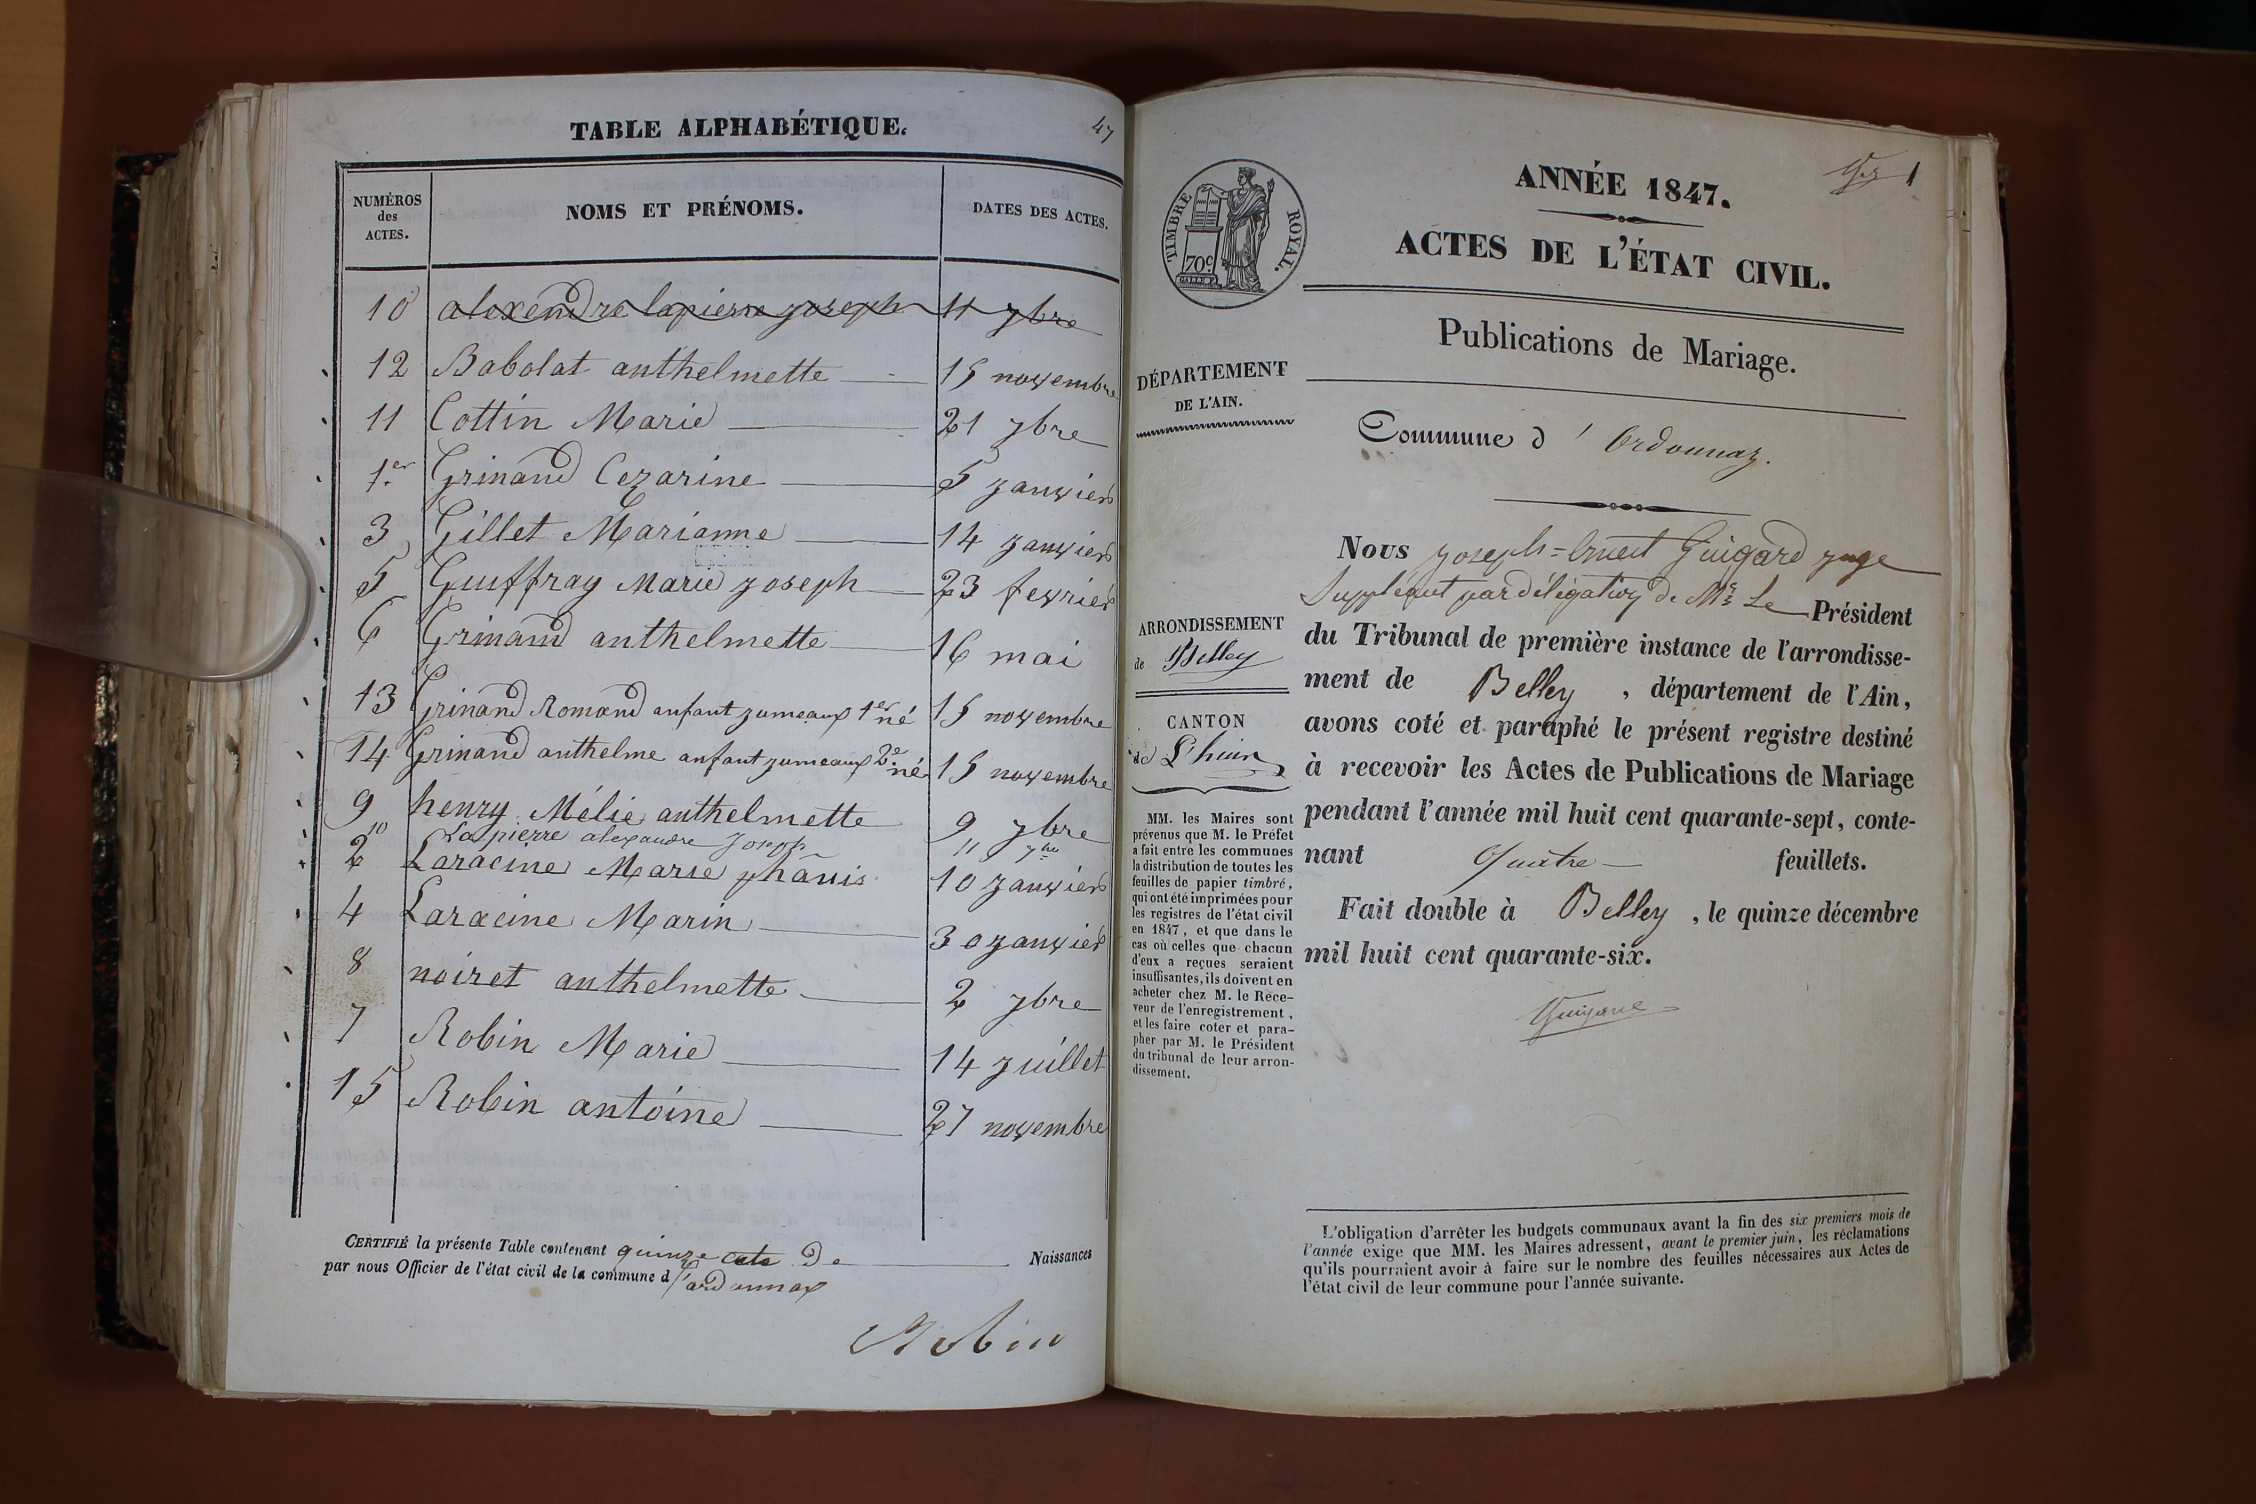 TABLE ALPHABÉTIQUE.
47
NUMÉROS des ACTES.
NOMS ET PRÉNOMS.
DATES DES ACTES.
10 alexendre lapierre joseph 11 7bre
12 Babolat anthelmette 15 novembre
11 Cottin Marie 21 7bre
1er Grinand Cezarine 5 janvier
3 Gillet Marianne 14 janvier
5 Guiffray Marie joseph 23 fevrier
6 Grinand anthelmette 16 mai
13 Grinand Romand anfant jumeaux 1er né 15 novembre
14 Grinand anthelme anfant jumeaux 2e né 15 novembre
9 henry Mélie anthelmette 9 7bre
10 Lapierre alexandre Joseph 11 7bre
2 Laracine Marie phânis 10 janvier
4 Laracine Marin 30 janvier
8 noiret anthelmette 2 7bre
7 Robin Marie 14 juillet
15 Robin antoine 27 novembre
CERTIFIÉ la présente Table contenant quinze de Naissances
par nous Officier de l'état civil de la commune d'ardonnax
Robin
1
TIMBRE ROYAL.
70c
ANNÉE 1847.
ACTES DE L'ÉTAT CIVIL.
Publications de Mariage.
DÉPARTEMENT
DE L'AIN.
Commune d'Ordonnaz.
ARRONDISSEMENT
de Belley
CANTON
de L'huis
MM. les Maires sont
prévenus que M. le Préfet
a fait entre les communes
la distribution de toutes les
feuilles de papier timbré,
qui ont été imprimées pour
les registres de l'état civil
en 1847, et que dans le
cas où celles que chacun
d'eux a reçues seraient
insuffisantes, ils doivent en
acheter chez M. le Rece-
veur de l'enregistrement,
et les faire coter et para-
pher par M. le Président
du tribunal de leur arron-
dissement.
Nous joseph=Ernest Guigard juge
Suppléant par délégation de Mr Le Président
du Tribunal de première instance de l'arrondisse-
ment de Belley, département de l'Ain,
avons coté et paraphé le présent registre destiné
à recevoir les Actes de Publications de Mariage
pendant l'année mil huit cent quarante-sept, conte-
nant Quatre feuillets.
Fait double à Belley, le quinze décembre
mil huit cent quarante-six.
Guigard
L'obligation d'arrêter les budgets communaux avant la fin des six premiers mois de
l'année exige que MM. les Maires adressent, avant le premier juin, les réclamations
qu'ils pourraient avoir à faire sur le nombre des feuilles nécessaires aux Actes de
l'état civil de leur commune pour l'année suivante.